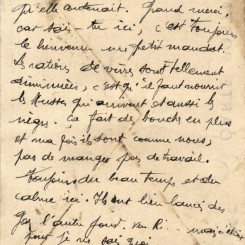 qu'elle contenait. Grand merci,
car vois-tu ici, c'est toujours
le bienvenu un petit mandat.
Les rations de vivres sont tellement
diminuées, c'est qu'il faut nourrir
les Russes qui arrivent et aussi les
nègres. ça fait des bouches en plus
et ma foi ils sont comme nous,
pas de manger pas de travail.
Toujours du beau temps et du
calme ici. Ils ont bien lancé des
gaz l'autre jour. mais c'était
pour je ne sais quoi